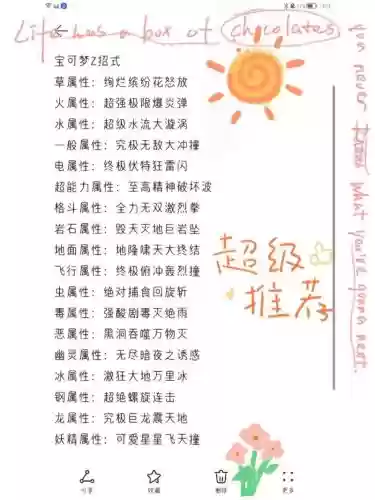 Life was a box of chocolates
you never know what you're gonna next.
宝可梦Z招式
草属性：绚烂缤纷花怒放
火属性：超强极限爆炎弹
水属性：超级水流大漩涡
一般属性：究极无敌大冲撞
电属性：终极伏特狂雷闪
超能力属性：至高精神破坏波
格斗属性：全力无双激烈拳
岩石属性：毁天灭地巨岩坠
地面属性：地隆啸天大终结
飞行属性：终极俯冲轰烈撞
虫属性：绝对捕食回旋斩
毒属性：强酸剧毒灭绝雨
恶属性：黑洞吞噬万物灭
幽灵属性：无尽暗夜之诱惑
冰属性：激狂大地万里冰
钢属性：超绝螺旋连击
龙属性：究极巨龙震天地
妖精属性：可爱星星飞天撞
超级
推荐
分享
收藏
删除
更多